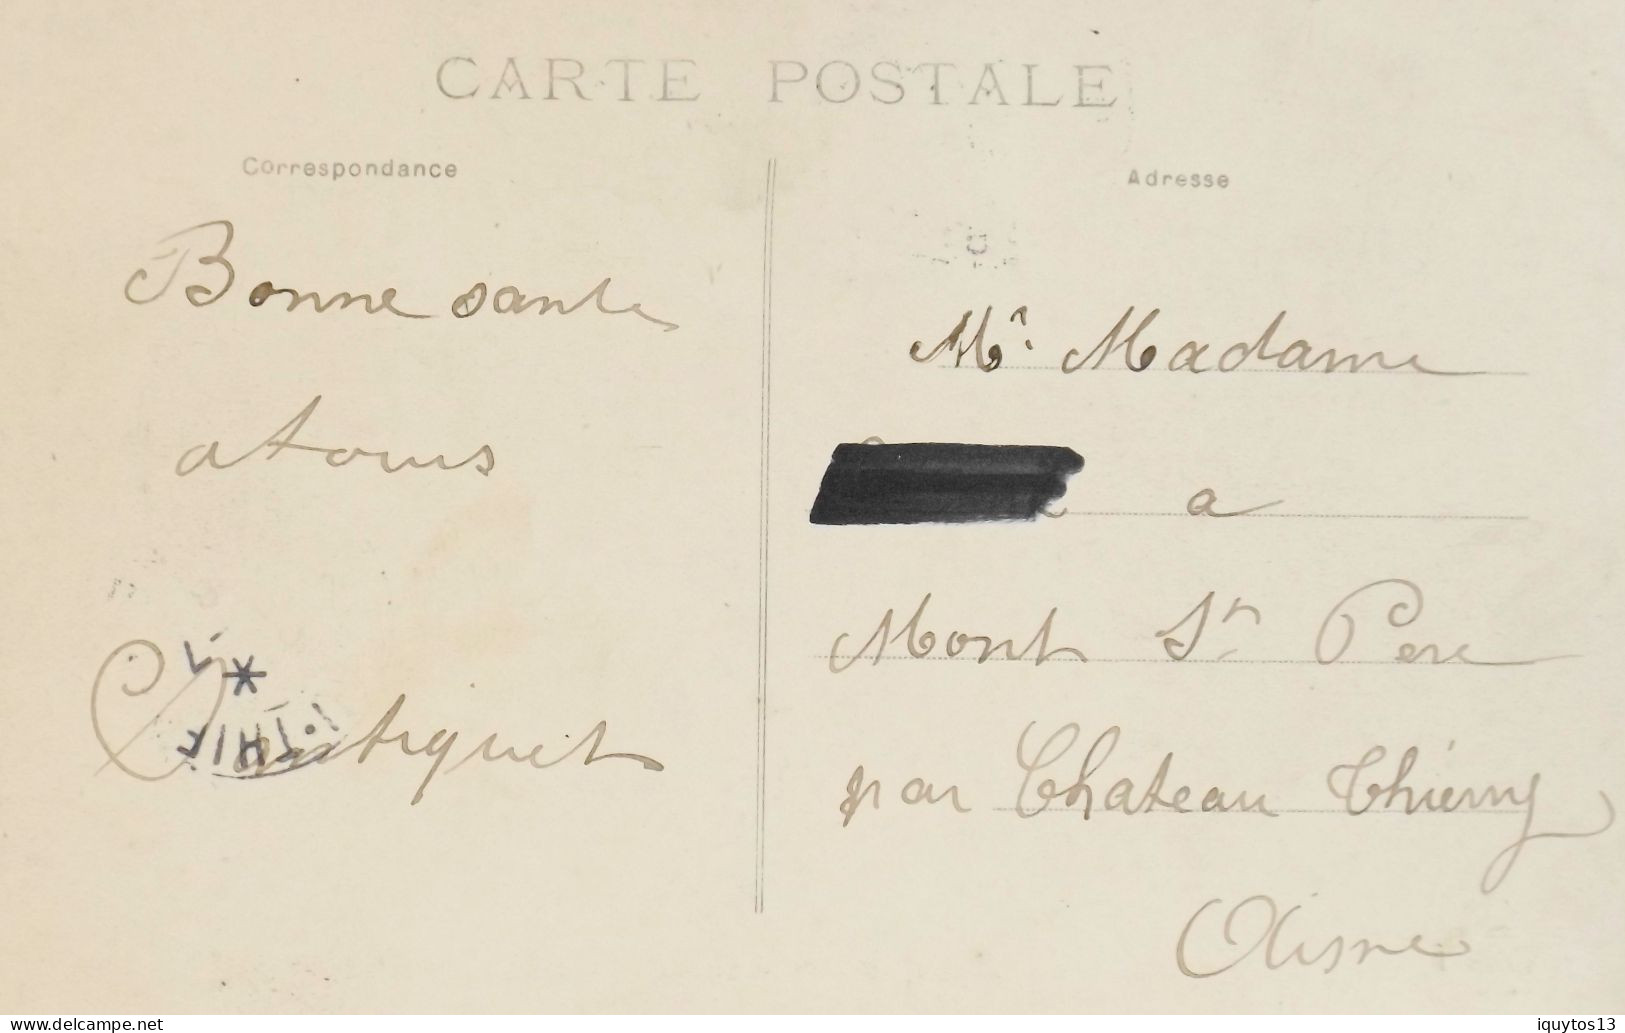 CARTE POSTALE
Correspondance
Adresse
Bonne sante
atous
Mr. Madame
a
Mont St Pere
par Chateau Thierry
Aisne
www.delcampe.net
iquytos13